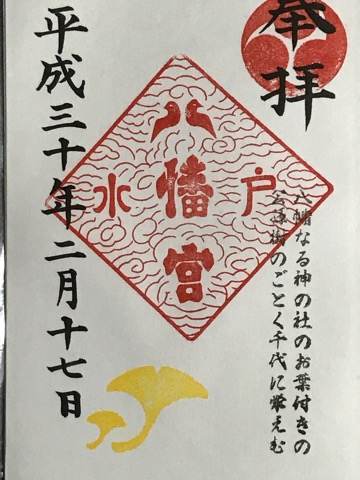 奉拝
八幡なる神の社のお葉付きの
公孫樹のごとく千代に栄えむ
八幡宮
水戸
平成三十年二月十七日